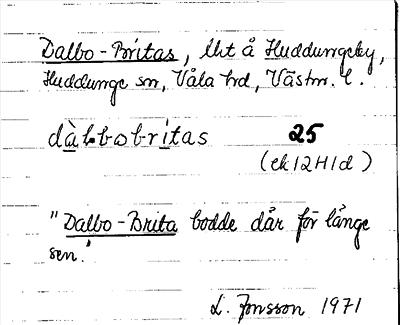 Dalbo-Britas, lht å Huddungeby,
Huddunge sn, Våla hd, Västm. l.
dàl.bobritas 25
(ek 12H1d)
"Dalbo-Brita bodde där för länge
sen."
L. Jonsson 1971